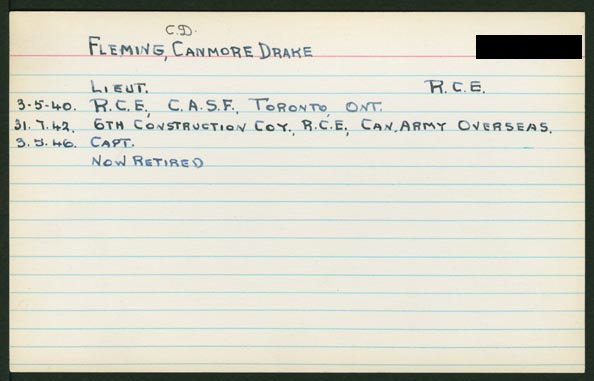 C.D.
FLEMING, CANMORE DRAKE
LIEUT. R.C.E.
3-5-40. R.C.E., C.A.S.F., TORONTO, ONT.
31.7.42. 6TH CONSTRUCTION COY., R.C.E., CAN. ARMY OVERSEAS.
3.5.46. CAPT.
NOW RETIRED